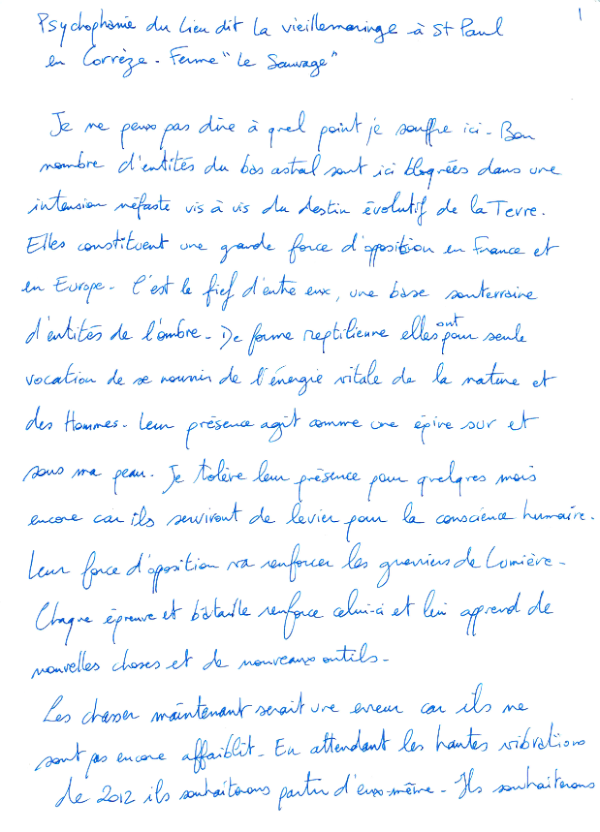 1
Psychophanie du lieu dit la vieillemaringe à St Paul
en Corrèze - Ferme "Le Sauvage"
Je ne peux pas dire à quel point je souffre ici - Bon
nombre d'entités du bas astral sont ici bloquées dans une
intension néfaste vis à vis du destin évolutif de la Terre.
Elles constituent une grande force d'opposition en France et
en Europe - C'est le fief d'entre eux, une base souterraine
d'entités de l'ombre - De forme reptilienne elles ont pour seule
vocation de se nourrir de l'énergie vitale de la nature et
des Hommes - Leur présence agit comme une épine sur et
sous ma peau. Je tolère leur présence pour quelques mois
encore car ils serviront de levier pour la conscience humaine.
Leur force d'opposition va renforcer les guerriers de Lumière -
Chaque épreuve et bataille renforce celui-ci et lui apprend de
nouvelles choses et de nouveaux outils -
Les chasser maintenant serait une erreur car ils ne
sont pas encore affaiblit - En attendant les hautes vibrations
de 2012 ils souhaiterons partir d'eux-même - Ils souhaiterons